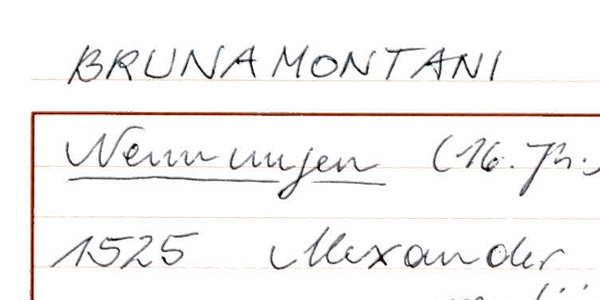 BRUNAMONTANI
Nennungen (16. Jh.
1525 Alexander